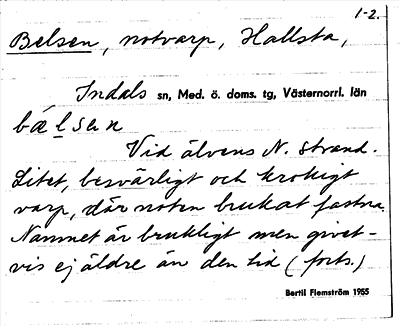 1-2.
Belsen, notvarp, Hallsta,
Indals sn, Med. ö. doms. tg, Västernorrl. län
bælsen
Vid älvens N. strand.
Litet, besvärligt och krokigt
varp, där noten brukat fastna.
Namnet är brukligt men givet-
vis ej äldre än den tid (forts.)
Bertil Flemström 1955